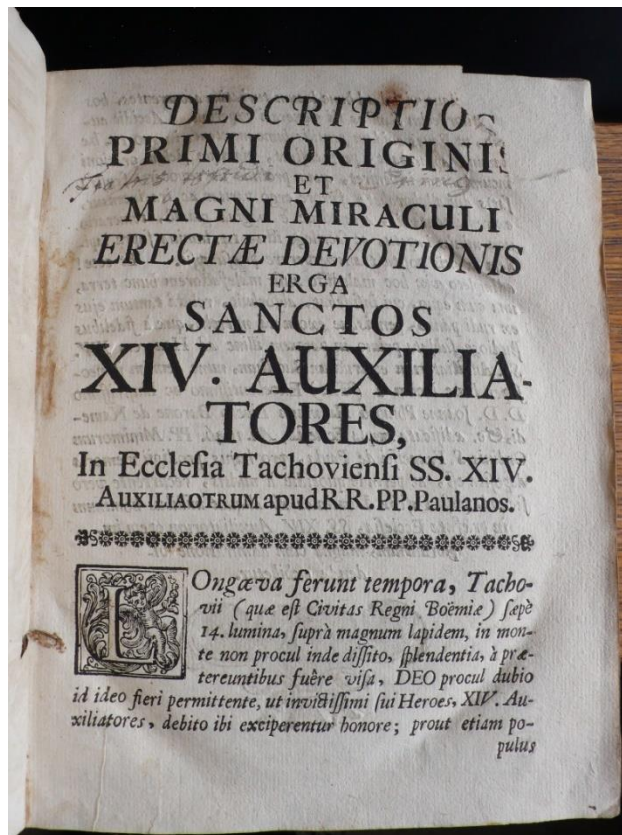 DESCRIPTIO
PRIMI ORIGINIS
ET
MAGNI MIRACULI
ERECTÆ DEVOTIONIS
ERGA
SANCTOS
XIV. AUXILIA-
TORES,
In Eccleſia Tachovienſi SS. XIV.
AUXILIAOTRUM apud RR. PP. Paulanos.
LOngæva ferunt tempora, Tacho-
vii (quæ eſt Civitas Regni Boëmiæ) ſæpè
14. lumina, ſuprà magnum lapidem, in mon-
te non procul inde diſſito, ſplendentia, à præ-
tereuntibus fuêre viſa, DEO procul dubio
id ideo fieri permittente, ut invictiſſimi ſui Heroes, XIV. Au-
xiliatores, debito ibi exciperentur honore; prout etiam po-
pulus